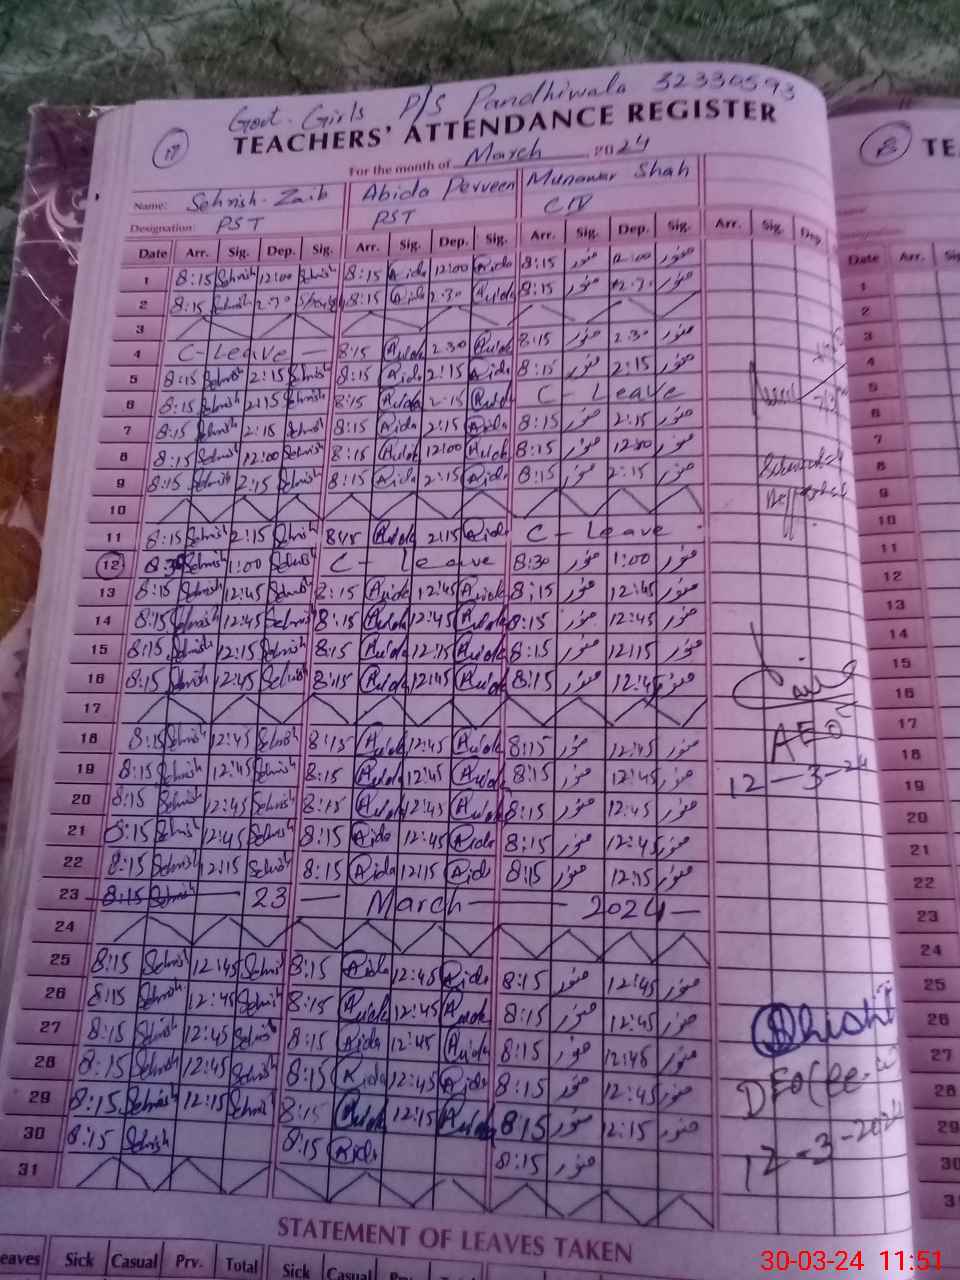 Govt. Girls P/S Pandhiwala 32330593
17
TEACHERS' ATTENDANCE REGISTER
8
TE
For the month of March 2024
Name: Sehrish Zaib Abida Perveen Munawar Shah
Designation: PST PST C/IV
Date Arr. Sig. Dep. Sig. Arr. Sig. Dep. Sig. Arr. Sig. Dep. Sig. Arr. Sig. Dep.
Date Arr. Sig
1 8:15 Sehrish 12:00 Sehrish 8:15 Aida 12:00 Aida 8:15 منور 12:00 منور
2 8:15 Sehrish 2:30 8:15 Aida 2:30 Aida 8:15 منور 2:30 منور
3
4 C-Leave — 8:15 Aida 2:30 Aida 8:15 منور 2:30 منور
5 8:15 Sehrish 2:15 Sehrish 8:15 Aida 2:15 Aida 8:15 منور 2:15 منور
6 8:15 Sehrish 2:15 Sehrish 8:15 Aida 2:15 Aida C - Leave
7 8:15 Sehrish 2:15 Sehrish 8:15 Aida 2:15 Aida 8:15 منور 2:15 منور
8 8:15 Sehrish 12:00 Sehrish 8:15 Aida 12:00 Aida 8:15 منور 12:00 منور
9 8:15 Sehrish 2:15 Sehrish 8:15 Aida 2:15 Aida 8:15 منور 2:15 منور
10
11 8:15 Sehrish 2:15 Sehrish 8:15 Aida 2:15 Aida C - Leave
12 8:30 Sehrish 1:00 Sehrish C - Leave 8:30 منور 1:00 منور
13 8:15 Sehrish 12:45 Sehrish 8:15 Aida 12:45 Aida 8:15 منور 12:45 منور
14 8:15 Sehrish 12:45 Sehrish 8:15 Aida 12:45 Aida 8:15 منور 12:45 منور
15 8:15 Sehrish 12:15 Sehrish 8:15 Aida 12:15 Aida 8:15 منور 12:15 منور
16 8:15 Sehrish 12:45 Sehrish 8:15 Aida 12:45 Aida 8:15 منور 12:45 منور
17
AEO
18 8:15 Sehrish 12:45 Sehrish 8:15 Aida 12:45 Aida 8:15 منور 12:45 منور
12-3-24
19 8:15 Sehrish 12:45 Sehrish 8:15 Aida 12:45 Aida 8:15 منور 12:45 منور
20 8:15 Sehrish 12:45 Sehrish 8:15 Aida 12:45 Aida 8:15 منور 12:45 منور
21 8:15 Sehrish 12:45 Sehrish 8:15 Aida 12:45 Aida 8:15 منور 12:45 منور
22 8:15 Sehrish 12:15 Sehrish 8:15 Aida 12:15 Aida 8:15 منور 12:15 منور
23 8:15 Sehrish — 23 — March — 2024 —
24
25 8:15 Sehrish 12:45 Sehrish 8:15 Aida 12:45 Aida 8:15 منور 12:45 منور
26 8:15 Sehrish 12:45 Sehrish 8:15 Aida 12:45 Aida 8:15 منور 12:45 منور
27 8:15 Sehrish 12:45 Sehrish 8:15 Aida 12:45 Aida 8:15 منور 12:45 منور
28 8:15 Sehrish 12:45 Sehrish 8:15 Aida 12:45 Aida 8:15 منور 12:45 منور
DEO
29 8:15 Sehrish 12:15 Sehrish 8:15 Aida 12:15 Aida 8:15 منور 12:15 منور
12-3-2024
30 8:15 Sehrish 8:15 Aida 8:15 منور
31
STATEMENT OF LEAVES TAKEN
eaves Sick Casual Prv. Total Sick Casual
1
2
3
4
5
6
7
8
9
10
11
12
13
14
15
16
17
18
19
20
21
22
23
24
25
26
27
28
29
30
3
30-03-24 11:51